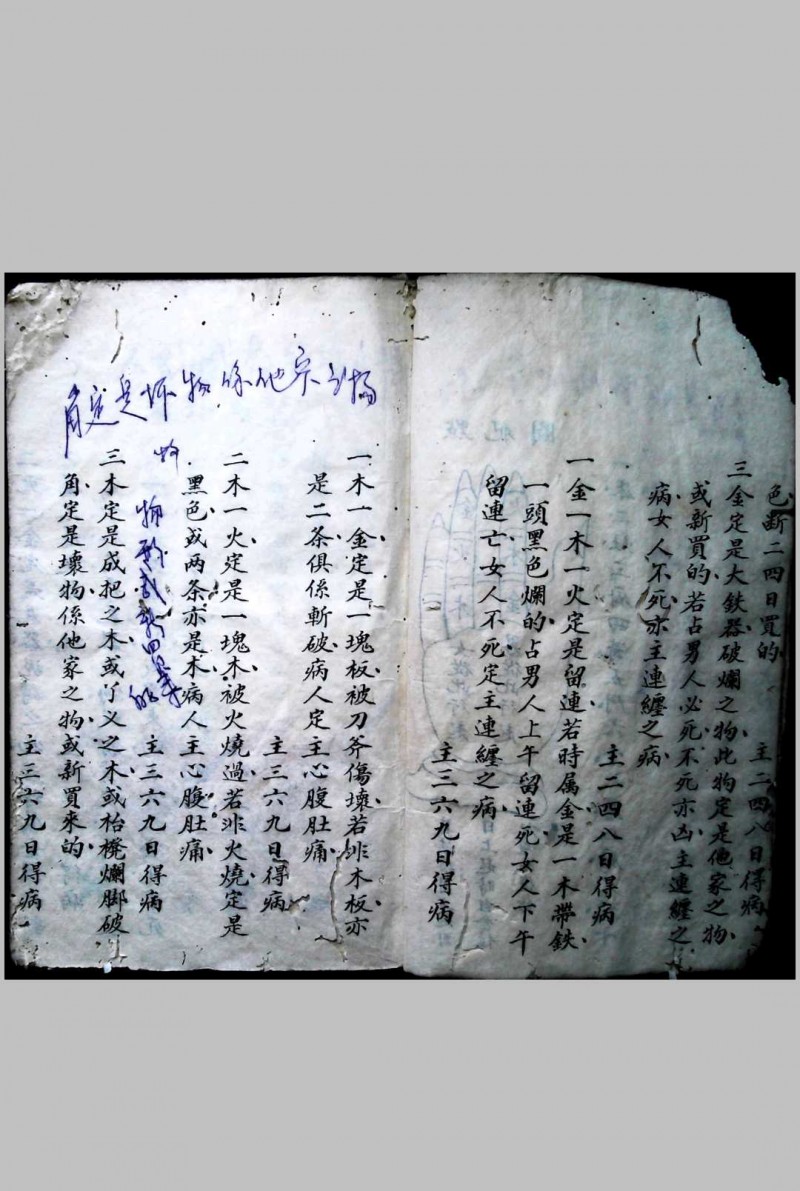 色断二四日買的
主二四八日得病
三金定是大鉄器破爛之物此物定是他家之物
或新買的若占男人必死不死亦凶主連纏之
病女人不死亦主連纏之病
主二四八日得病
一金一木一火定是留連若時属金是一木帶鉄
一頭黑色爛的占男人上午留連死女人下午
留連亡女人不死定主連纏之病
主三六九日得病
一木一金定是一塊板被刀斧傷壞若非木板亦
是二条俱係斬破病人定主心腹肚痛
主三六九日得病
二木一火定是一塊木被火燒過若非火燒定是
黑色或两条亦是木病人主心腹肚痛
主三六九日得病
三木定是成把之木或丫义之木或枱櫈爛脚破
角定是壞物係他家之物或新買來的
主三六九日得病
角定是坏物係他家之物